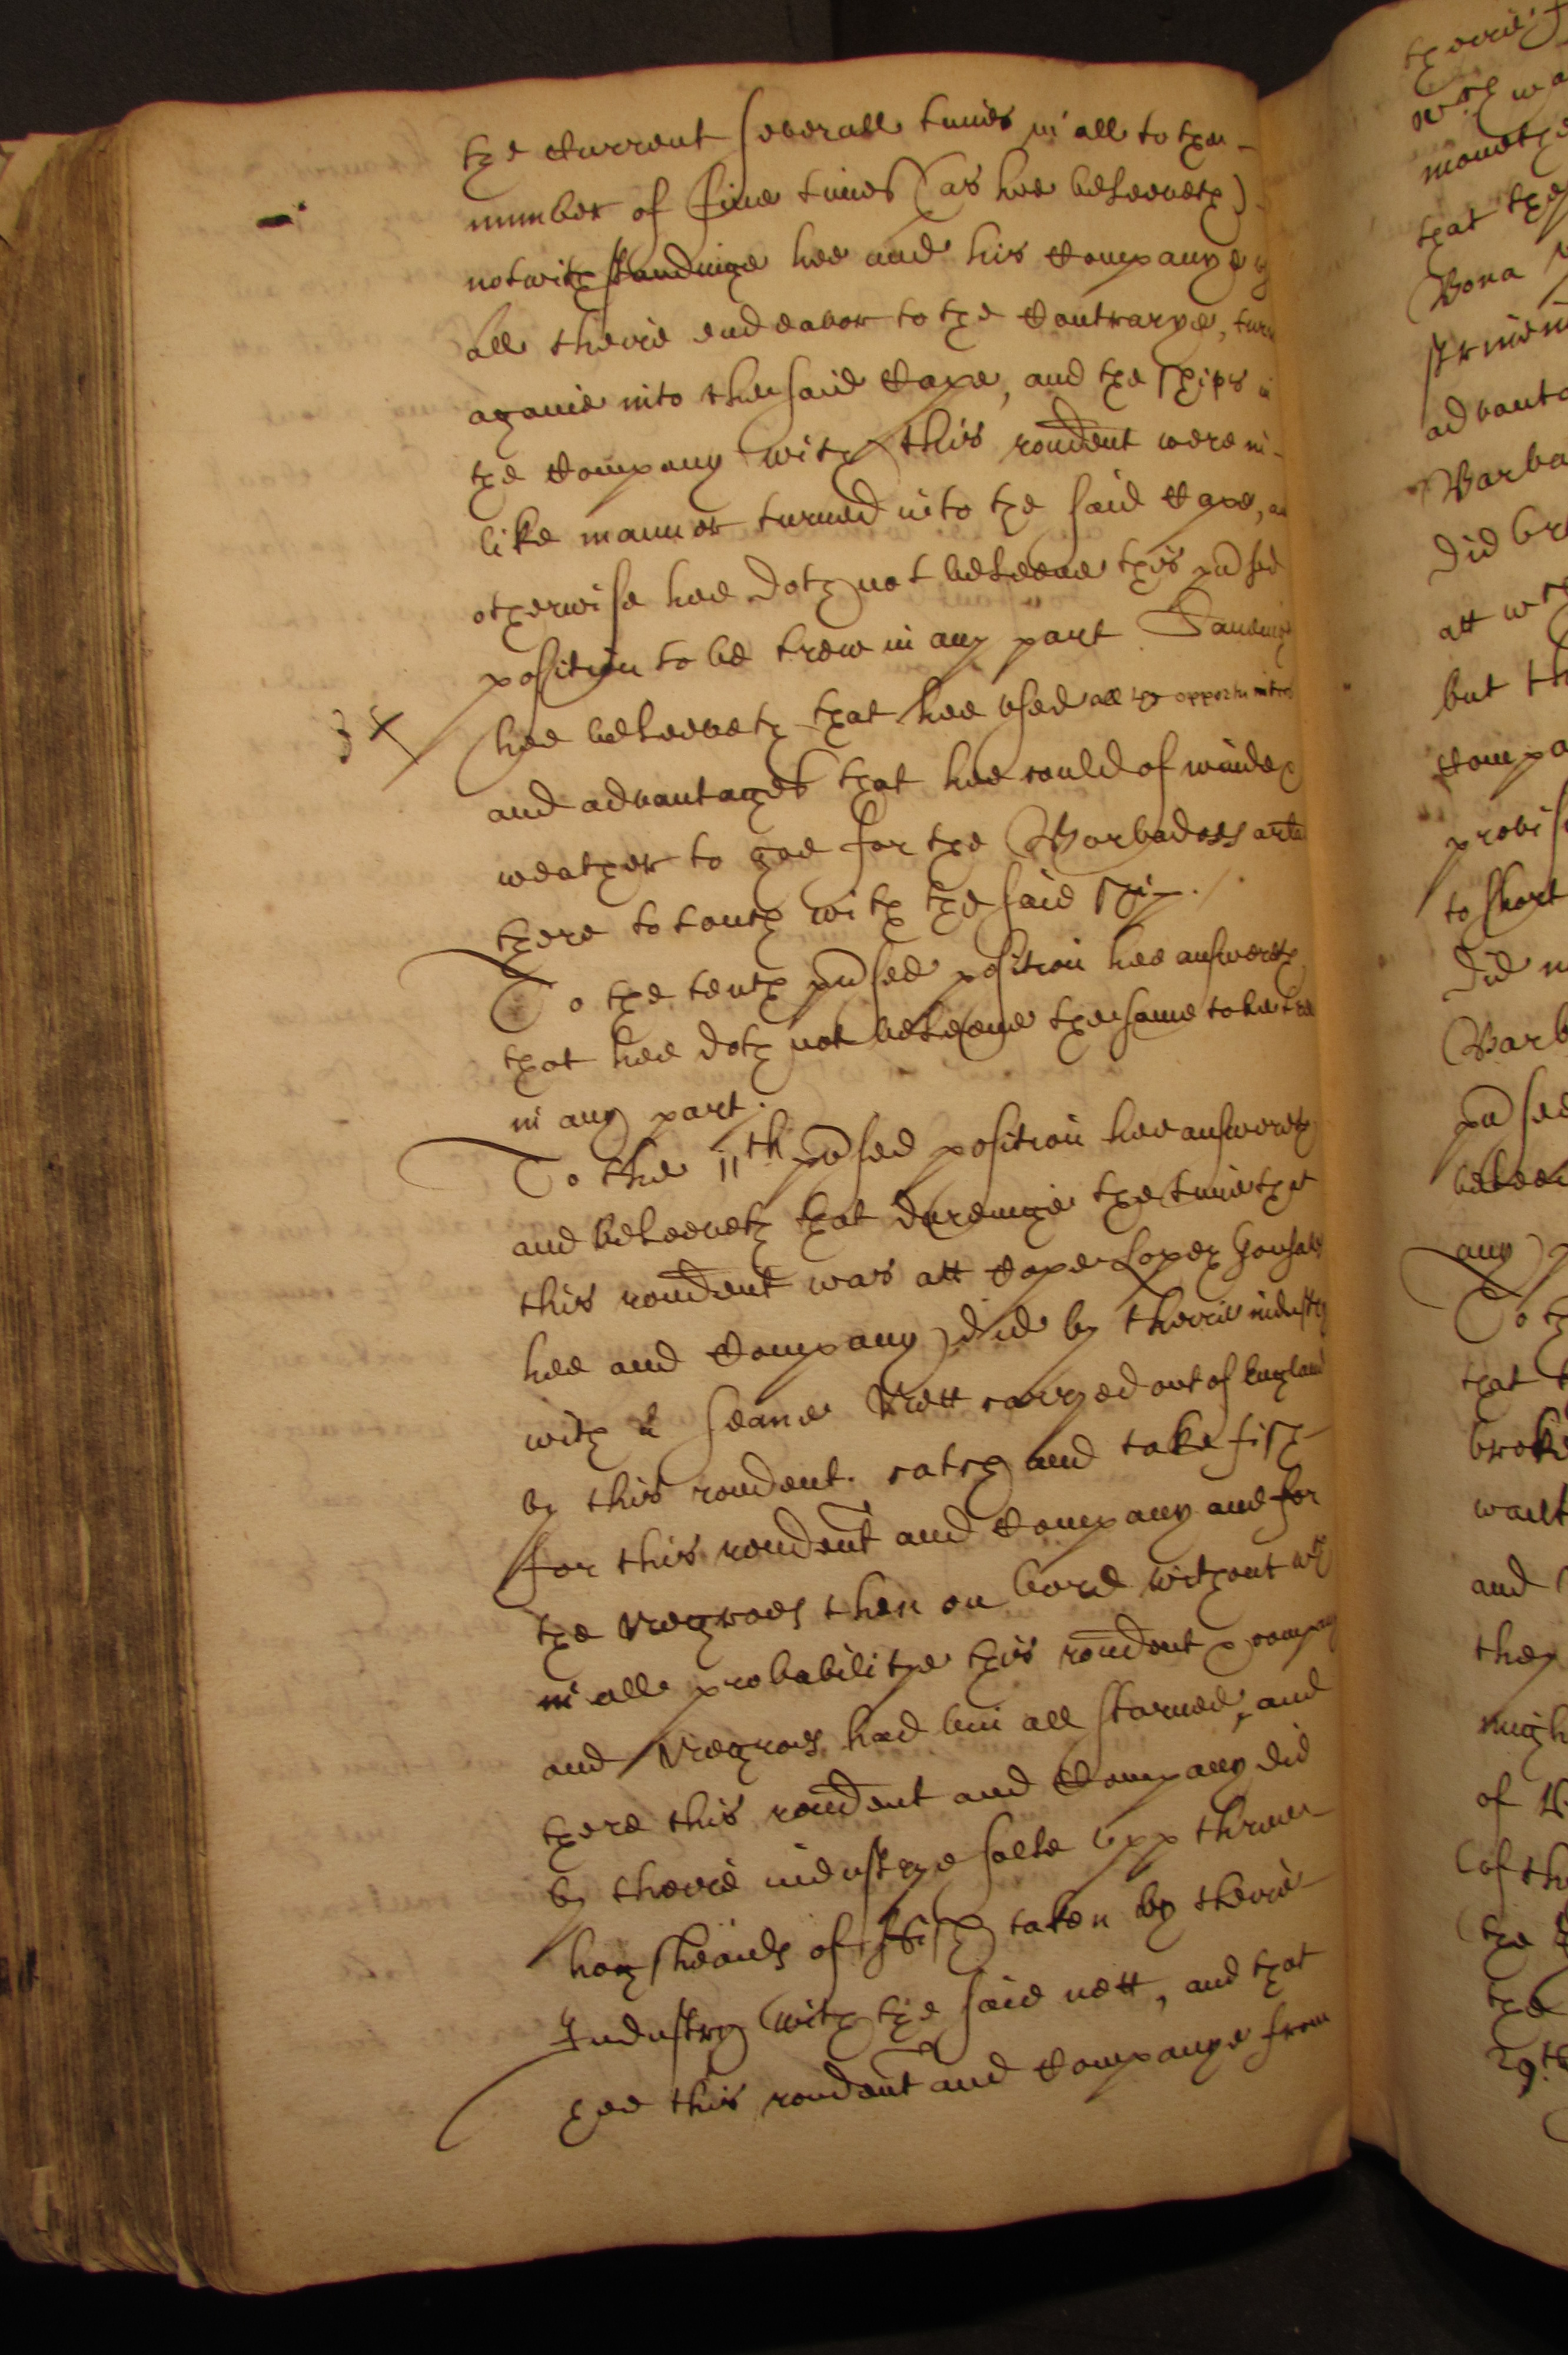 the Current severall times in all to the
number of five times (as hee beleeveth)
notwithstandinge hee and his Companye
all theire endeavor to the Contrarye, turn
againe into the said Cape, and the ships
the Company with this rondent were in
like manner turned into the said Cape,
otherwise hee doth not beleeve this pdsed
position to be trew in any part Saveing
hee beleeveth that hee used all ye opportunities
and advantages that hee could of winde
weather to goe for the Barbadoes
there to touch with the said ship.
To the tenth pdsed position hee answereth
that hee doth not beleeve the same to be trew
in any part.
To the 11th pdsed position hee answereth
and beleeveth that dureinge the time that
this rondent was att Cape Lopez Gonsalv
hee and Company did by theire industry
with a seane Nett carryed out of England
by this rondent. catch and take fish
for this rondent and Company and for
the Negroes then on bord without wch
in all probabilitye this rondent company
and Negroes had bin all starved, and
there this rondent and Company did
by theire industrye salte upp three
hogsheads of fish taken by theire
Industry with the said nett, and that
hee this rondent and Companye from
theire
wch wa
moneth
that the
Bona
advanta
Barba
did br
att wch
but th
Compa
provis
to short
did n
Barb
pdsed
beleev
any p
To th
that
broke
want
and
they
migh
of
of th
the
the
29th